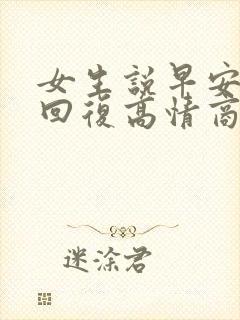 女生說早安
回復高情商
迷涂君